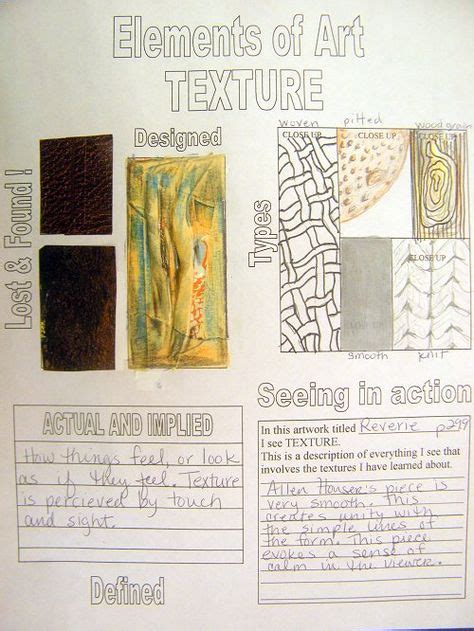 Elements of Art
TEXTURE
Lost & Found!
Designed
Types
woven
pitted
wood grain
CLOSE UP
CLOSE UP
CLOSE UP
CLOSE UP
CLOSE UP
smooth
knit
ACTUAL AND IMPLIED
How things feel, or look
as if they feel. Texture
is percieved by touch
and sight.
Defined
Seeing in action
In this artwork titled Reverie p299
I see TEXTURE.
This is a description of everything I see that
involves the textures I have learned about.
Allen Houser's piece is
very smooth. This
creates unity with
the simple lines of
the form. This piece
evokes a sense of
calm in the viewer.